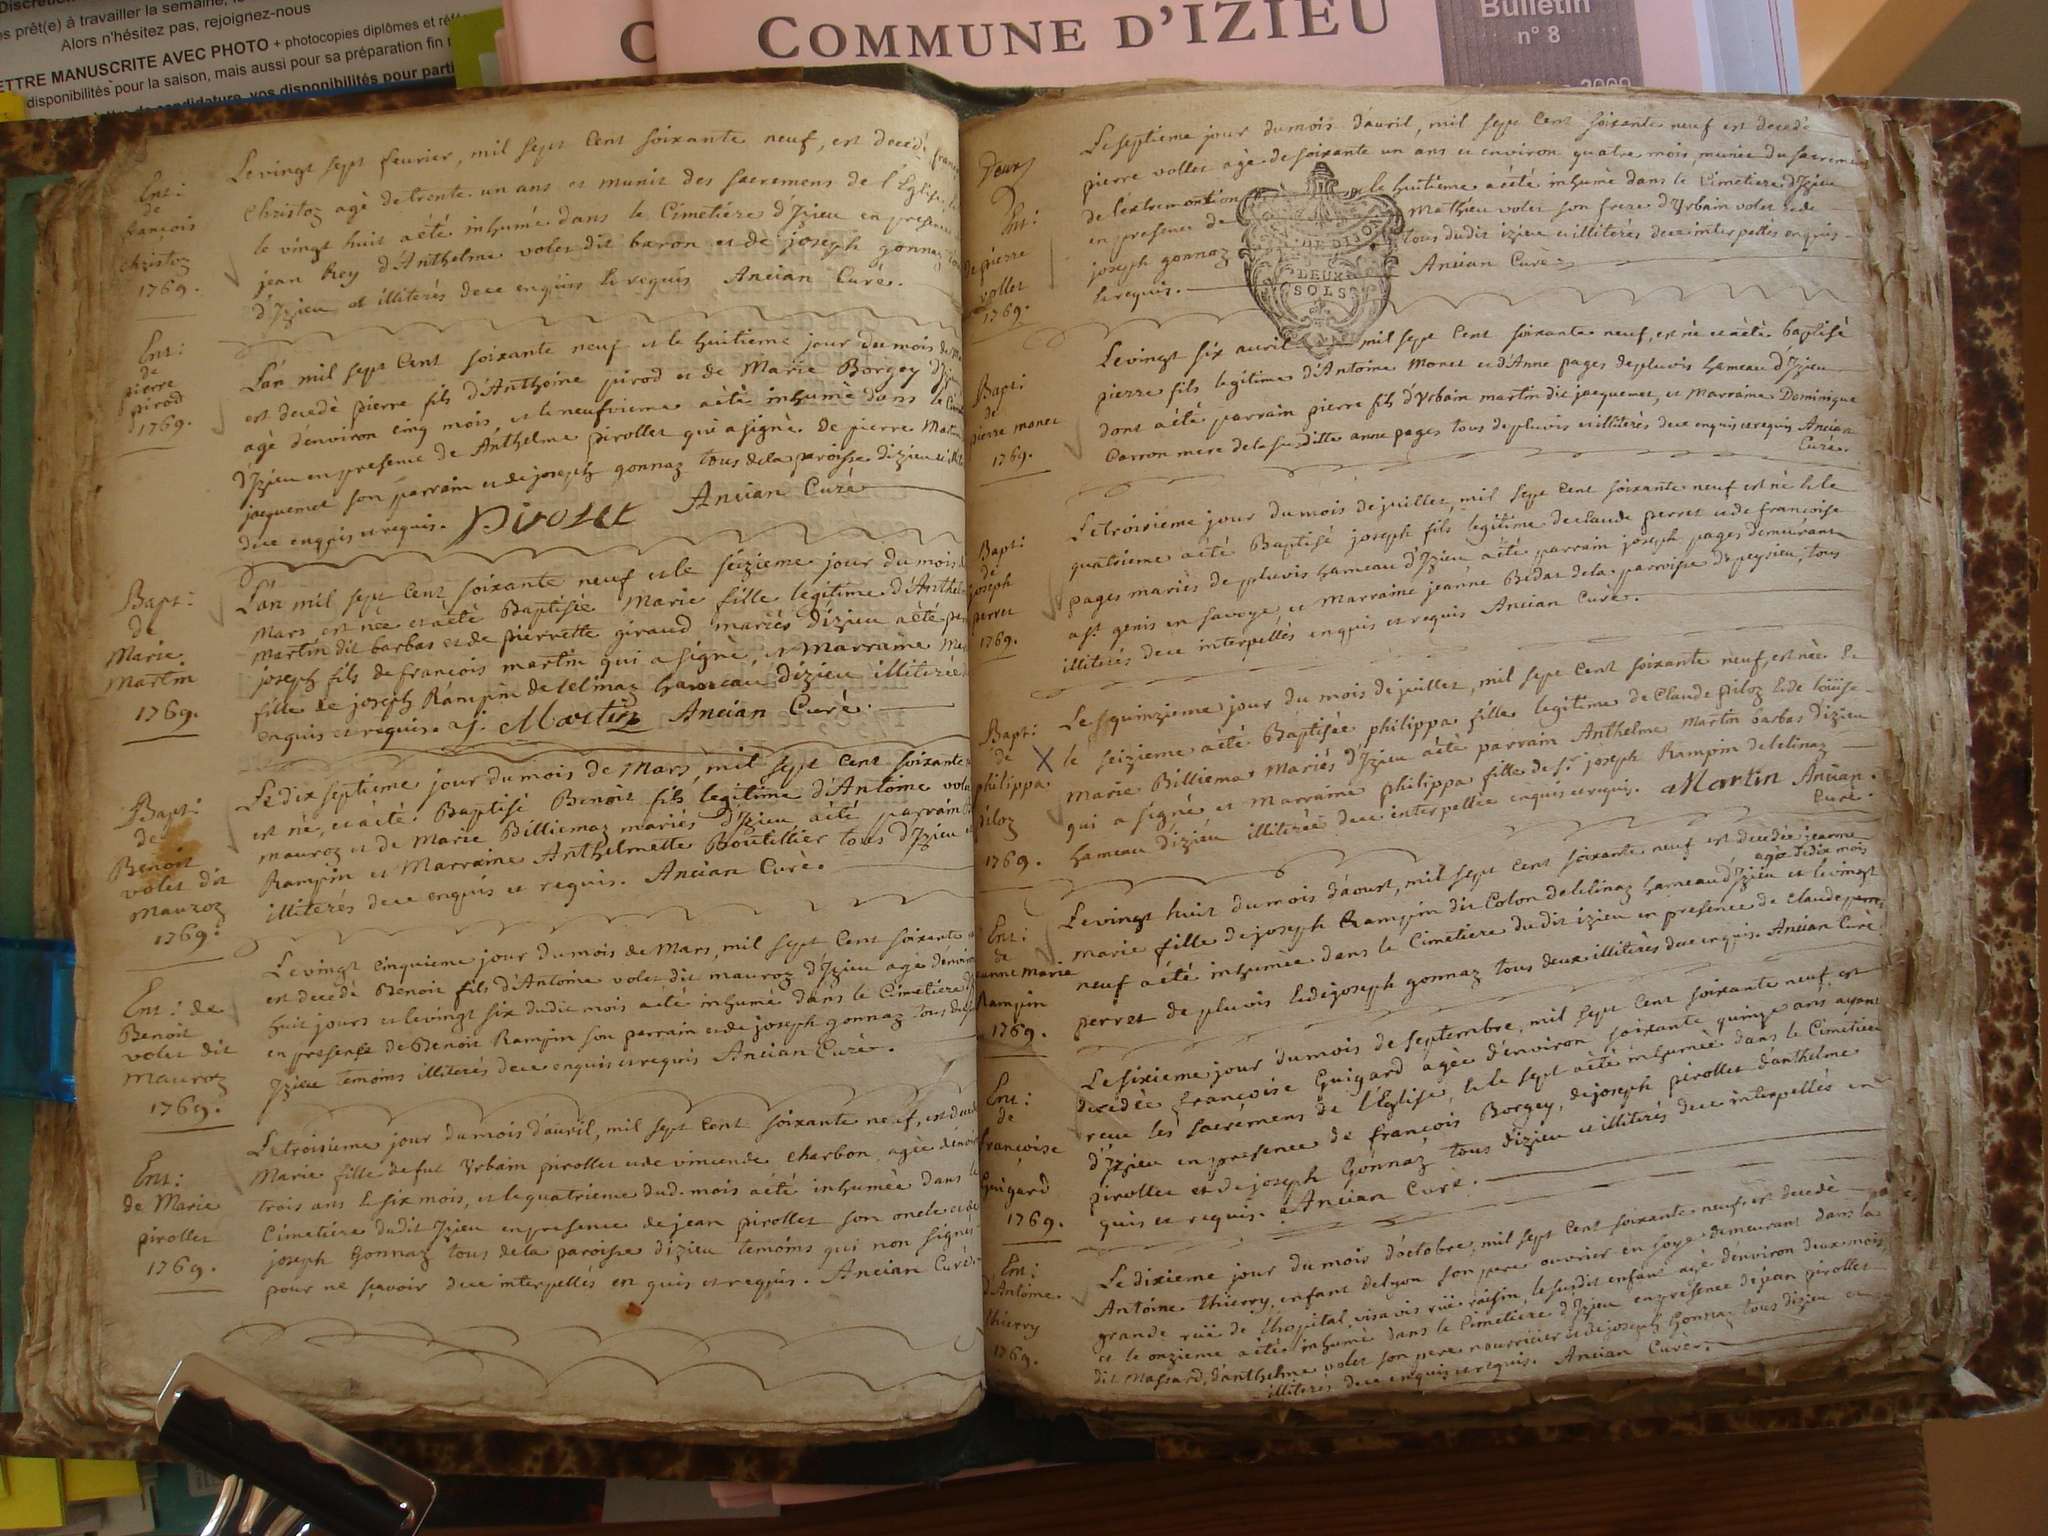 es prêt(e) à travailler la semaine,
Alors n'hésitez pas, rejoignez-nous
ETTRE MANUSCRITE AVEC PHOTO + photocopies diplômes et
disponibilités pour la saison, mais aussi pour sa préparation fin
vos disponibilités pour parti
COMMUNE D'IZIEU
Bulletin
n° 8
Ent:
de
françois
christoz
1769.
Le vingt sept feurier, mil sept Cent soixante neuf, est decedé
Christoz agè de trente un ans et munit des sacremens de l'Eglise
le vingt huit aété inhumé dans le Cimetiere d'Izieu en presen
jean Rey d'Anthelme volet dit baron et de joseph gonnaz
d'Izieu et illiterés de ce enquis et requis Ancian Curé.
Ent:
de
pierre
pirod
1769.
L'an mil sept Cent soixante neuf et le huitieme jour du mois de
est decedè pierre fils d'Anthoine pirod et de Marie Borgey d'Izieu
agè d'environ cinq mois, et le neufvieme aété inhumè dans le
d'Izieu en presence de Anthelme pirollet qui a signè. De pierre Martin
jacquemet son parrain et de joseph gonnaz tous de la paroisse d'izieu
de ce enquis et requis. Pirolet Ancian Curé
Bapt:
de
Marie
Martin
1769.
L'an mil sept Cent soixante neuf et le seizieme jour du mois
Mars est née et aété Baptisée Marie fille legitime d'Anthel
Martin dit barbas et de pierrette giraud mariés d'izieu aété
joseph fils de françois martin qui a signè, et Marraine
fille de joseph Rampin de lelinaz hameau d'izieu illiterée
enquis et requis. J. Martin Ancian Curé.
Bapt:
de
Benoit
volet dit
mauroz
1769.
Le dix septieme jour du mois de Mars, mil sept Cent soixante
est né, et aété Baptisé Benoit fils legitime d'Antoine vol
mauroz et de Marie Billiemaz mariés d'Izieu aété parrain
Rampin et Marraine Anthelmette Boutillier tous d'Izieu
illiterés de ce enquis et requis. Ancian Curè.
Ent: de
Benoit
volet dit
mauroz
1769.
Le vingt cinquieme jour du mois de Mars, mil sept Cent soixante
est decedè Benoit fils d'Antoine volet dit mauroz d'Izieu agè d'environ
huit jours et le vingt six dudit mois aété inhumè dans le Cimetiere
en presence de Benoit Rampin son parrain et de joseph gonnaz tous
Izieu temoins illiterés de ce enquis et requis Ancian Curè.
Ent:
de Marie
pirollet
1769.
Le troisieme jour du mois d'auril, mil sept Cent soixante neuf, est
Marie fille de fut Yrbain pirollet et de vincende Charbon agèe d'environ
trois ans et six mois, et le quatrieme dud. mois aété inhumèe dans
Cimetiere dudit Izieu en presence de jean pirollet son oncle et de
joseph Gonnaz tous de la paroisse d'izieu temoins qui non signés
pour ne sçavoir de ce interpellés enquis et requis. Ancian Curé.
Deux
Ent:
de pierre
vollet
1769.
Le septieme jour du mois d'auril, mil sept Cent soixante neuf est decedé
pierre vollet agè de soixante un ans et environ quatre mois, munie du sacrement
de l'extremontion le huitieme aété inhumè dans le Cimetiere d'Izieu
en presence de Mathieu volet son frere d'Yrbain volet et de
joseph gonnaz tous dudit izieu et illiterés de ce interpellés enquis
et requis. Ancian Curè.
DEUX
SOLS
Bapt:
de
pierre monet
1769.
Le vingt six auril mil sept Cent soixante neuf, est nè et aétè baptisé
pierre fils legitime d'Antoine Monet et d'Anne pages de pluvis hameau d'Izieu
dont aété parrain pierre fils d'Yrbain martin dit jacquemet, et Marraine Dominique
Carron mere de la susditte anne pages tous de pluvis et illiterés de ce enquis et requis Ancian
Curé.
Bapt:
de
joseph
perret
1769.
Le troisieme jour du mois de juillet, mil sept Cent soixante neuf est nè et le
quatrieme aété Baptisé joseph fils legitime de Claude perret et de françoise
pages mariés de pluvis hameau d'Izieu aété parrain joseph pages demeurant
a st. genis en savoye, et Marraine jeanne Bedat de la parroisse de peyrieu, tous
illiterés de ce interpellés enquis et requis Ancian Curé.
Bapt:
de
philippa
piloz
1769.
X
Le quinzieme jour du mois de juillet, mil sept Cent soixante neuf, est née et
le seizieme aété Baptisée philippa fille legitime de Claude piloz et de loüise
Marie Billiemaz Mariés d'Izieu aété parrain Anthelme Martin barbas d'izieu
qui a signé et Marraine philippa fille de sr. joseph Rampin de lelinaz
hameau d'izieu illiterée de ce interpellée enquis et requis. Martin Ancian.
Curé.
Ent:
de
jeanne Marie
Rampin
1769.
Le vingt huit du mois d'aoust, mil sept Cent soixante neuf est decedée jeanne
agée de dix mois
marie fille de joseph Rampin dit Colon de lelinaz hameau d'Izieu et le vingt
neuf aété inhumèe dans le Cimetiere dudit izieu en presence de Claude
perret de pluvis et de joseph gonnaz tous deux illiterés de ce enquis. Ancian Curè
Ent:
de
françoise
Guigard
1769.
Le sixieme jour du mois de septembre, mil sept Cent soixante neuf est
decedèe françoise Guigard agèe d'environ soixante quinze ans ayant
reçue les sacremens de l'Eglise, et le sept aété inhumèe dans le Cimetiere
d'Izieu en presence de françois Borgey, de joseph pirollet d'anthelme
pirollet et de joseph Gonnaz tous d'izieu et illiterés de ce interpellés en
quis et requis. Ancian Curé.
Ent:
d'Antoine
thierry
1769.
Le dixieme jour du mois d'octobre, mil sept Cent soixante neuf est decedé
Antoine thierry enfant de lyon son pere ouvrier en soye demeurant dans la
grande rüe de l'hospital, visavis rüe raisin, le susdit enfant agè d'environ deux mois
et le onzieme aété inhumé dans le Cimetiere d'Izieu en presence de jean pirollet
dit Massard, d'anthelme volet son pere nourricier et de joseph Gonnaz tous d'izieu et
illiterés de ce enquis et requis. Ancian Curè.